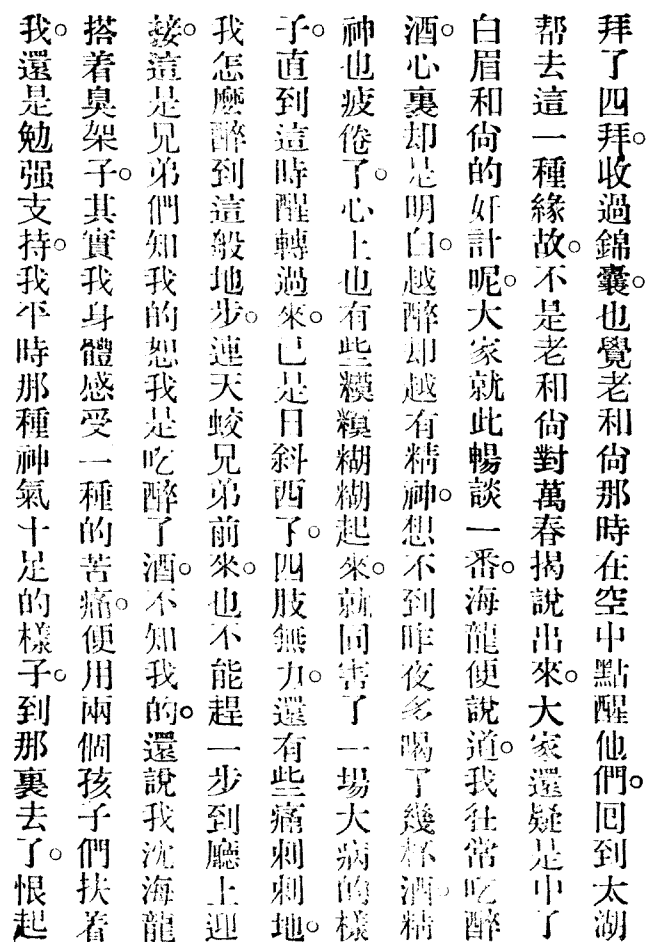 拜了四拜。收過錦囊。也覺老和尙那時在空中點醒他們。囘到太湖
帮去這一種緣故。不是老和尙對萬春揭說出來。大家還疑是中了
白眉和尙的奸計呢。大家就此暢談一番。海龍便說道。我往常吃醉
酒。心裏却是明白。越醉却越有精神。想不到昨夜多喝了幾杯酒。精
神也疲倦了。心上也有些糢糢糊糊起來。就同害了一場大病的樣
子。直到這時醒轉過來。已是日斜西了。四肢無力。還有些痛刺刺地。
我怎麽醉到這般地步。連天蛟兄弟前來。也不能趕一步到廳上迎
接。這是兄弟們知我的恕我是吃醉了酒。不知我的。還說我沈海龍
搭着臭架子。其實我身體感受一種的苦痛。便用兩個孩子們扶着
我。還是勉强支持。我平時那種神氣十足的樣子。到那裏去了。恨起